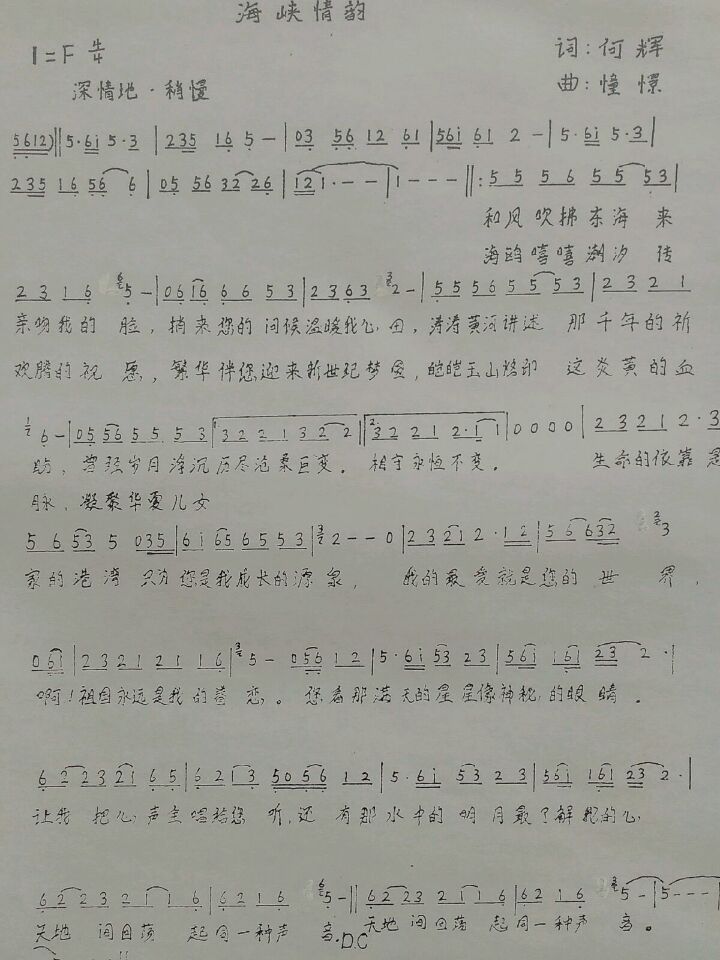 海峡情韵
1=F 4/4
词:何辉
深情地·稍慢
曲:憧憬
5612)‖5·6i 5·3 | 235 16 5 — | 03 56 12 61 | 561 61 2 — | 5·6i 5·3 |
235 16 56 6 | 05 56 32 26 | 121·—— | 1——— ‖: 55 56 55 53 |
和风吹拂东海 来
海鸥嘻嘻潮汐 传
23 16 5— | 06 16 66 53 | 23 63 2— | 55 56 55 53 | 23 21
亲吻我的 脸,捎来您的问候温暖我心田,涛涛黄河讲述 那千年的祈
欢腾的祝 愿,繁华伴您迎来新世纪梦 ,皑皑玉山 印 这炎黄的血
6— | 05 56 55 53 | 32 21 32 2 | 32 21 2·1 1 | 0000 | 23 21 2·3
盼,曾经岁月浮沉历尽沧桑巨变。相守永恒不变。 生命的依靠是
脉,凝聚华夏儿女
56 53 5 035 | 6i 65 65 53 | 2——0 | 23 21 2·12 | 56 632 3
家的港湾 只为您是我成长的源泉, 我的最爱就是您的世 界,
061 | 23 21 21 16 | 5— 056 12 | 5·6i 53 23 | 56i 161 23 2· |
啊!祖国永远是我的眷恋。您看那满天的星星像神秘的眼睛。
62 23 21 65 | 62 13 5056 12 | 5·6i 53 23 | 56i 161 23 2· |
让我 把心声全唱给您 听,还有那水中的明月最了解我的心
62 23 21 16 | 62 16 5— ‖ 62 23 21 16 | 62 16 5— | 5———
天地 间回荡 起同一种声 音. D.C 天地 间回荡 起同一种声 音。